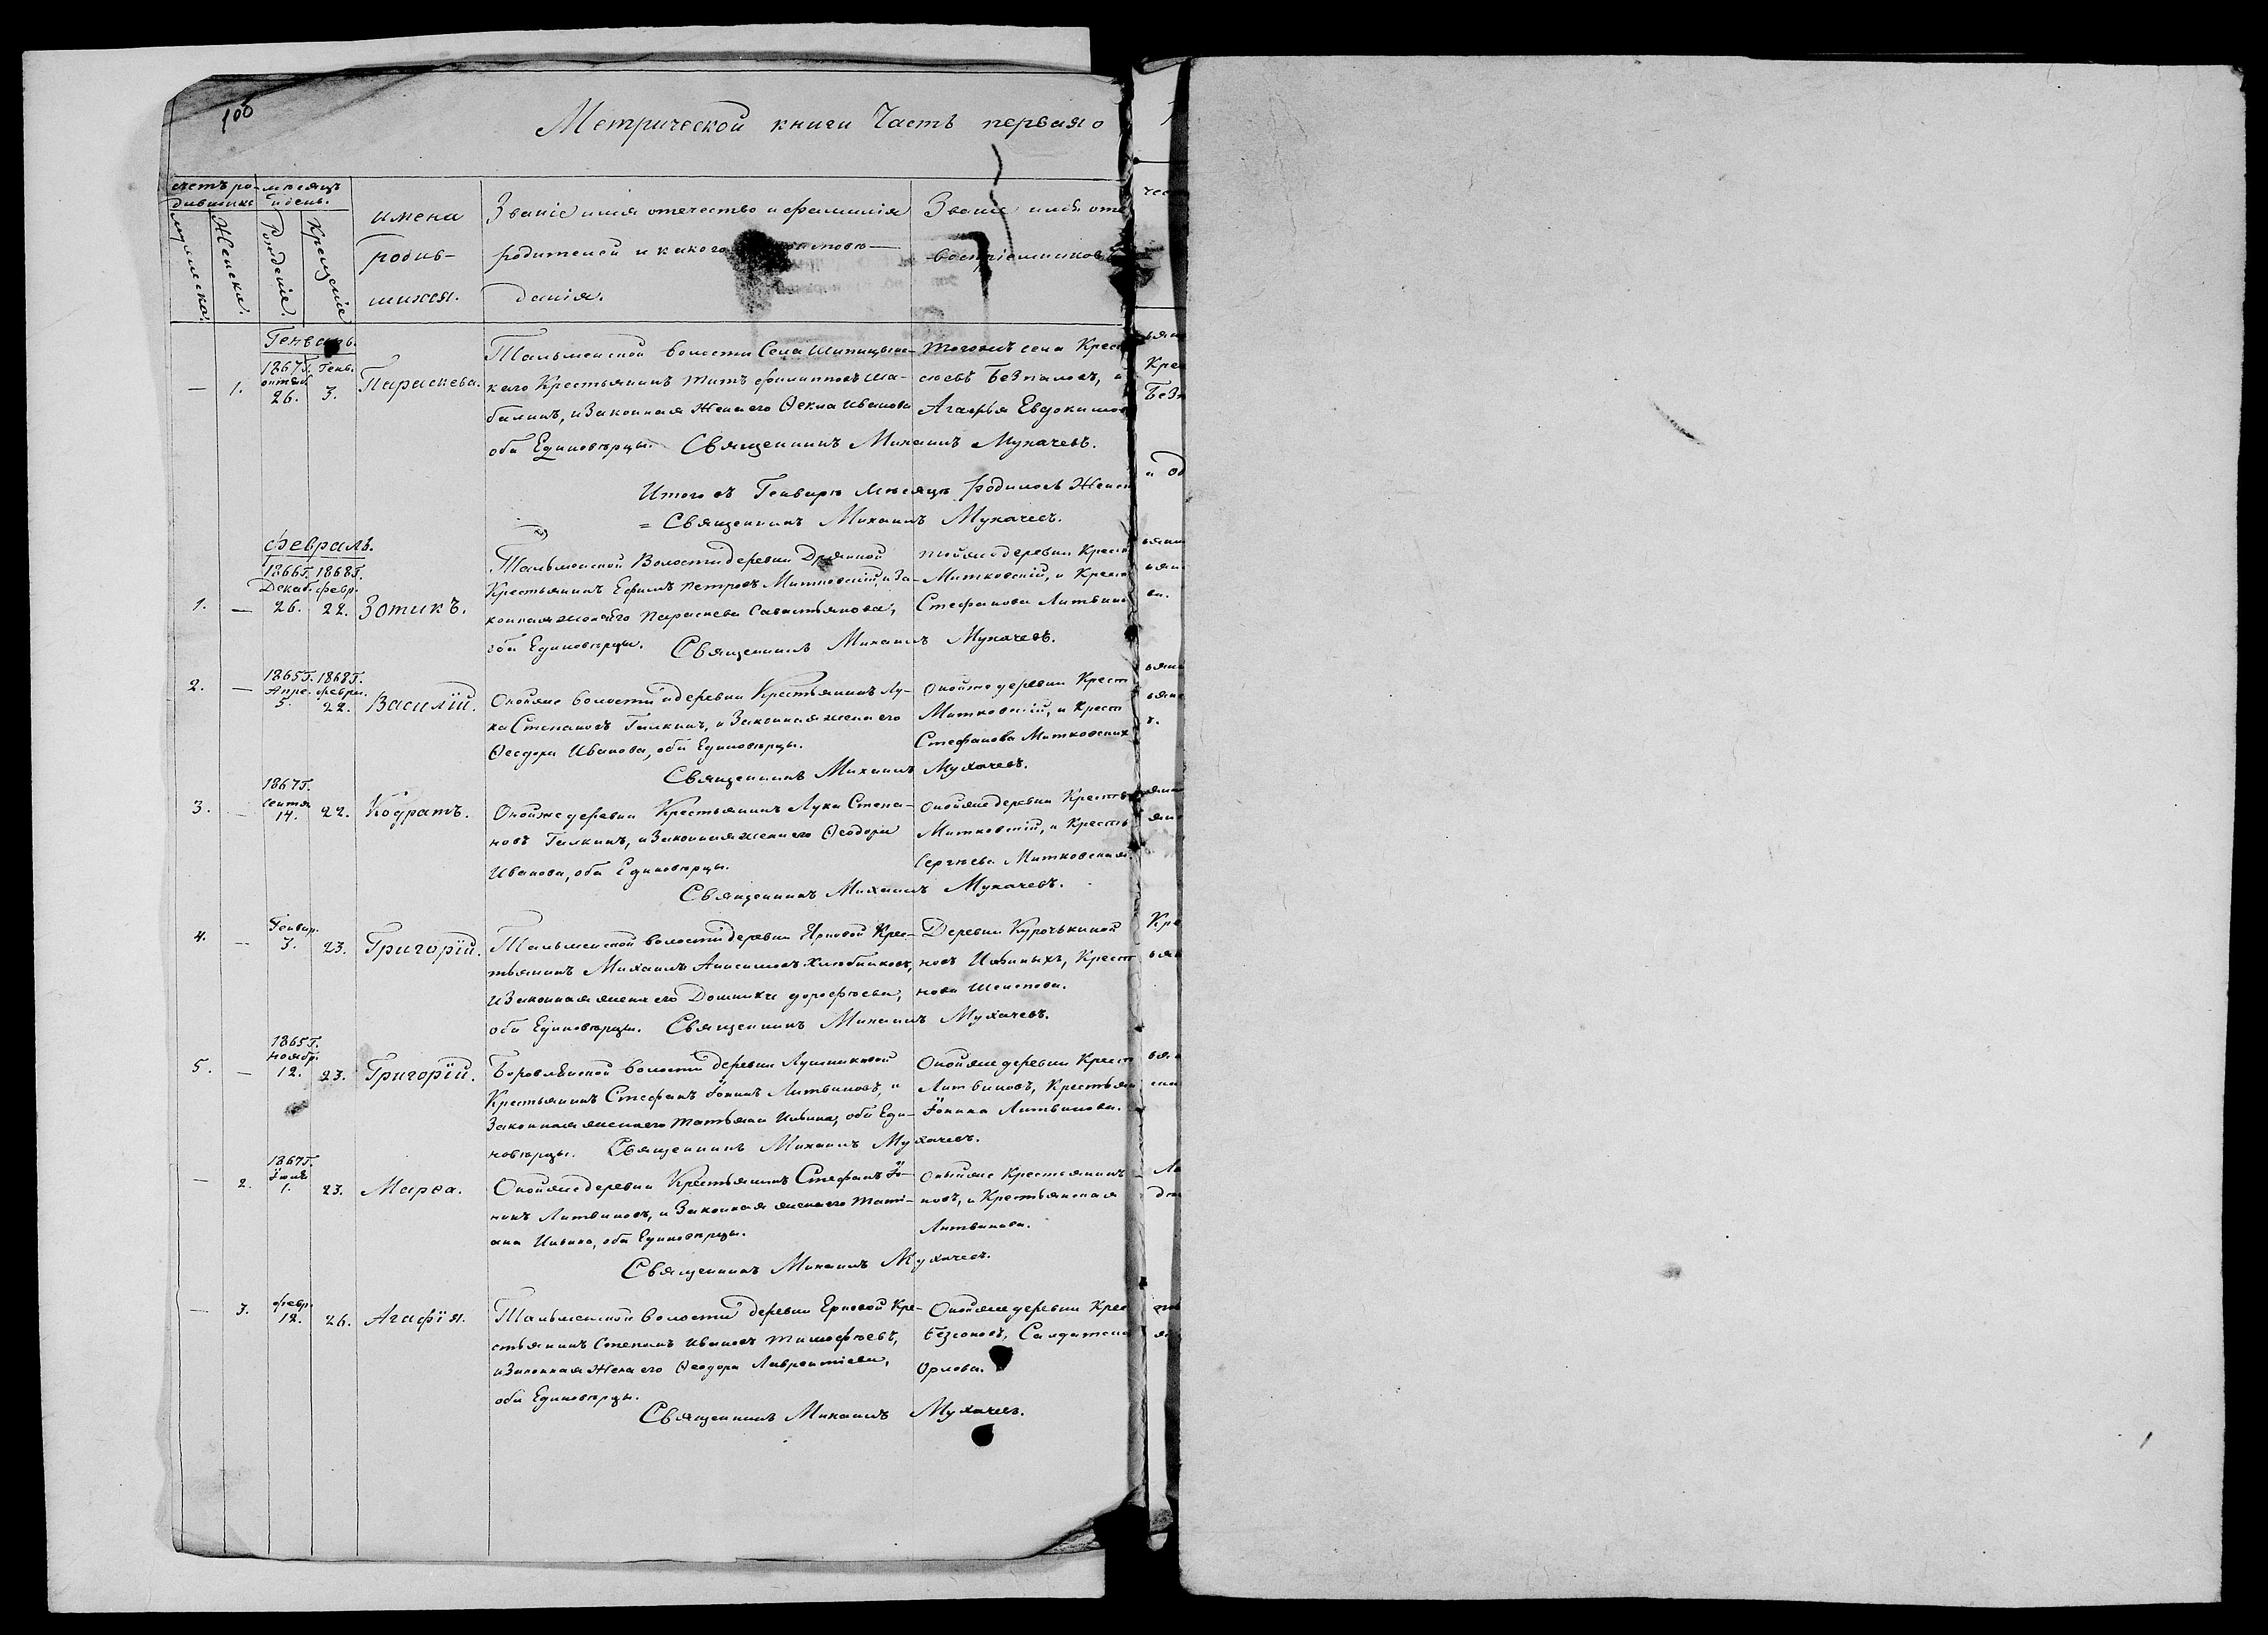 100
Метрической книги Часть первая о
счетъ ро-
дившихся
мѣсяцъ
и день.
мужеска.
Женска.
Рожденіе.
Крещеніе
имена
родив-
шихся.
Званіе имя отечество и фамилія
родителей и какого
данія.
Званіе имя оте
воспріемниковъ
Генварь.
— 1. 1867Г. октяб. 26. Генв. 3. Параскева.
Тальменской волости Села Шипицынс-
каго Крестьянинъ Титъ филипповъ Ша-
балинъ, и Законная Жена его Ѳекла Иванова
оба Единовѣрцы. Священникъ Михаилъ Мухачевъ.
тогожъ села Крест
сѣевъ Безпаловъ, и
Агафья Евдокимов
Итого въ Генварѣ Мѣсяцѣ родилось Женск
= Священникъ Михаилъ Мухачевъ.
февраль.
1. — 1866Г. Декаб. 26. 1868Г. февр. 22. Зотикъ.
Тальменской Волости деревни Дрянной
Крестьянинъ Ефимъ Петровъ Митковскій, и За-
конная жена его Параскева Савастьянова,
оба Единовѣрцы. Священникъ Михаилъ Мухачевъ.
тойже деревни Крест
Митковскій, и Крест
Стефанова Литвино
2. — 1865Г. Апре. 5. 1868Г. февра. 22. Василій.
Онойже волости и деревни Крестьянинъ Лу-
ка Степановъ Галкинъ, и Законная жена его
Ѳеодора Иванова, оба Единовѣрцы.
Священникъ Михаилъ Мухачевъ.
Онойже деревни Крест
Митковскій, и Крест
Стефанова Митковских
3. — 1867Г. Сентя. 14. 22. Кодратъ.
Онойже деревни Крестьянинъ Лука Степа-
новъ Галкинъ, и Законная жена его Ѳеодора
Иванова, оба Единовѣрцы.
Священникъ Михаилъ Мухачевъ.
Онойже деревни Кресть
Митковскій, и Кресть
Сергѣева Митковская.
4. — Генвар. 3. 23. Григорій.
Тальменской волости деревни Ярковой Крес-
тьянинъ Михаилъ Анисимовъ Хлюбниковъ,
и Законная жена его Домника дорофѣева,
оба Единовѣрцы. Священникъ Михаилъ Мухачевъ.
Деревни Курочкиной
новъ Ильиныхъ, Крест
нова Шестова.
5. — 1865Г. Ноябр. 12. 23. Григорій.
Боровлянской волости деревни Лушниковой
Крестьянинъ Стефанъ Іонинъ Литвиновъ, и
Законная жена его Татьяна Ильина, оба Еди-
новѣрцы. Священникъ Михаилъ Мухачевъ.
Онойже деревни Крест
Литвиновъ, Крестьян
Іонина Литвинова.
— 2. 1867Г. Іюнь 1. 23. Марѳа.
Онойже деревни Крестьянинъ Стефанъ Іо-
нинъ Литвиновъ, и Законная жена его Тать-
яна Ильина, оба Единовѣрцы.
Священникъ Михаилъ Мухачевъ.
Онойже Крестьянинъ
новъ, и Крестьянская
Литвинова.
— 3. февр. 12. 26. Агафія.
Тальменской волости деревни Ерковой Кре-
стьянинъ Степанъ Ивановъ Тимофѣевъ,
и Законная Жена его Ѳеодора Лаврентіева,
оба Единовѣрцы.
Священникъ Михаилъ Мухачевъ.
Онойже деревни Крес
Безсоновъ, Салдатска
Орлова.